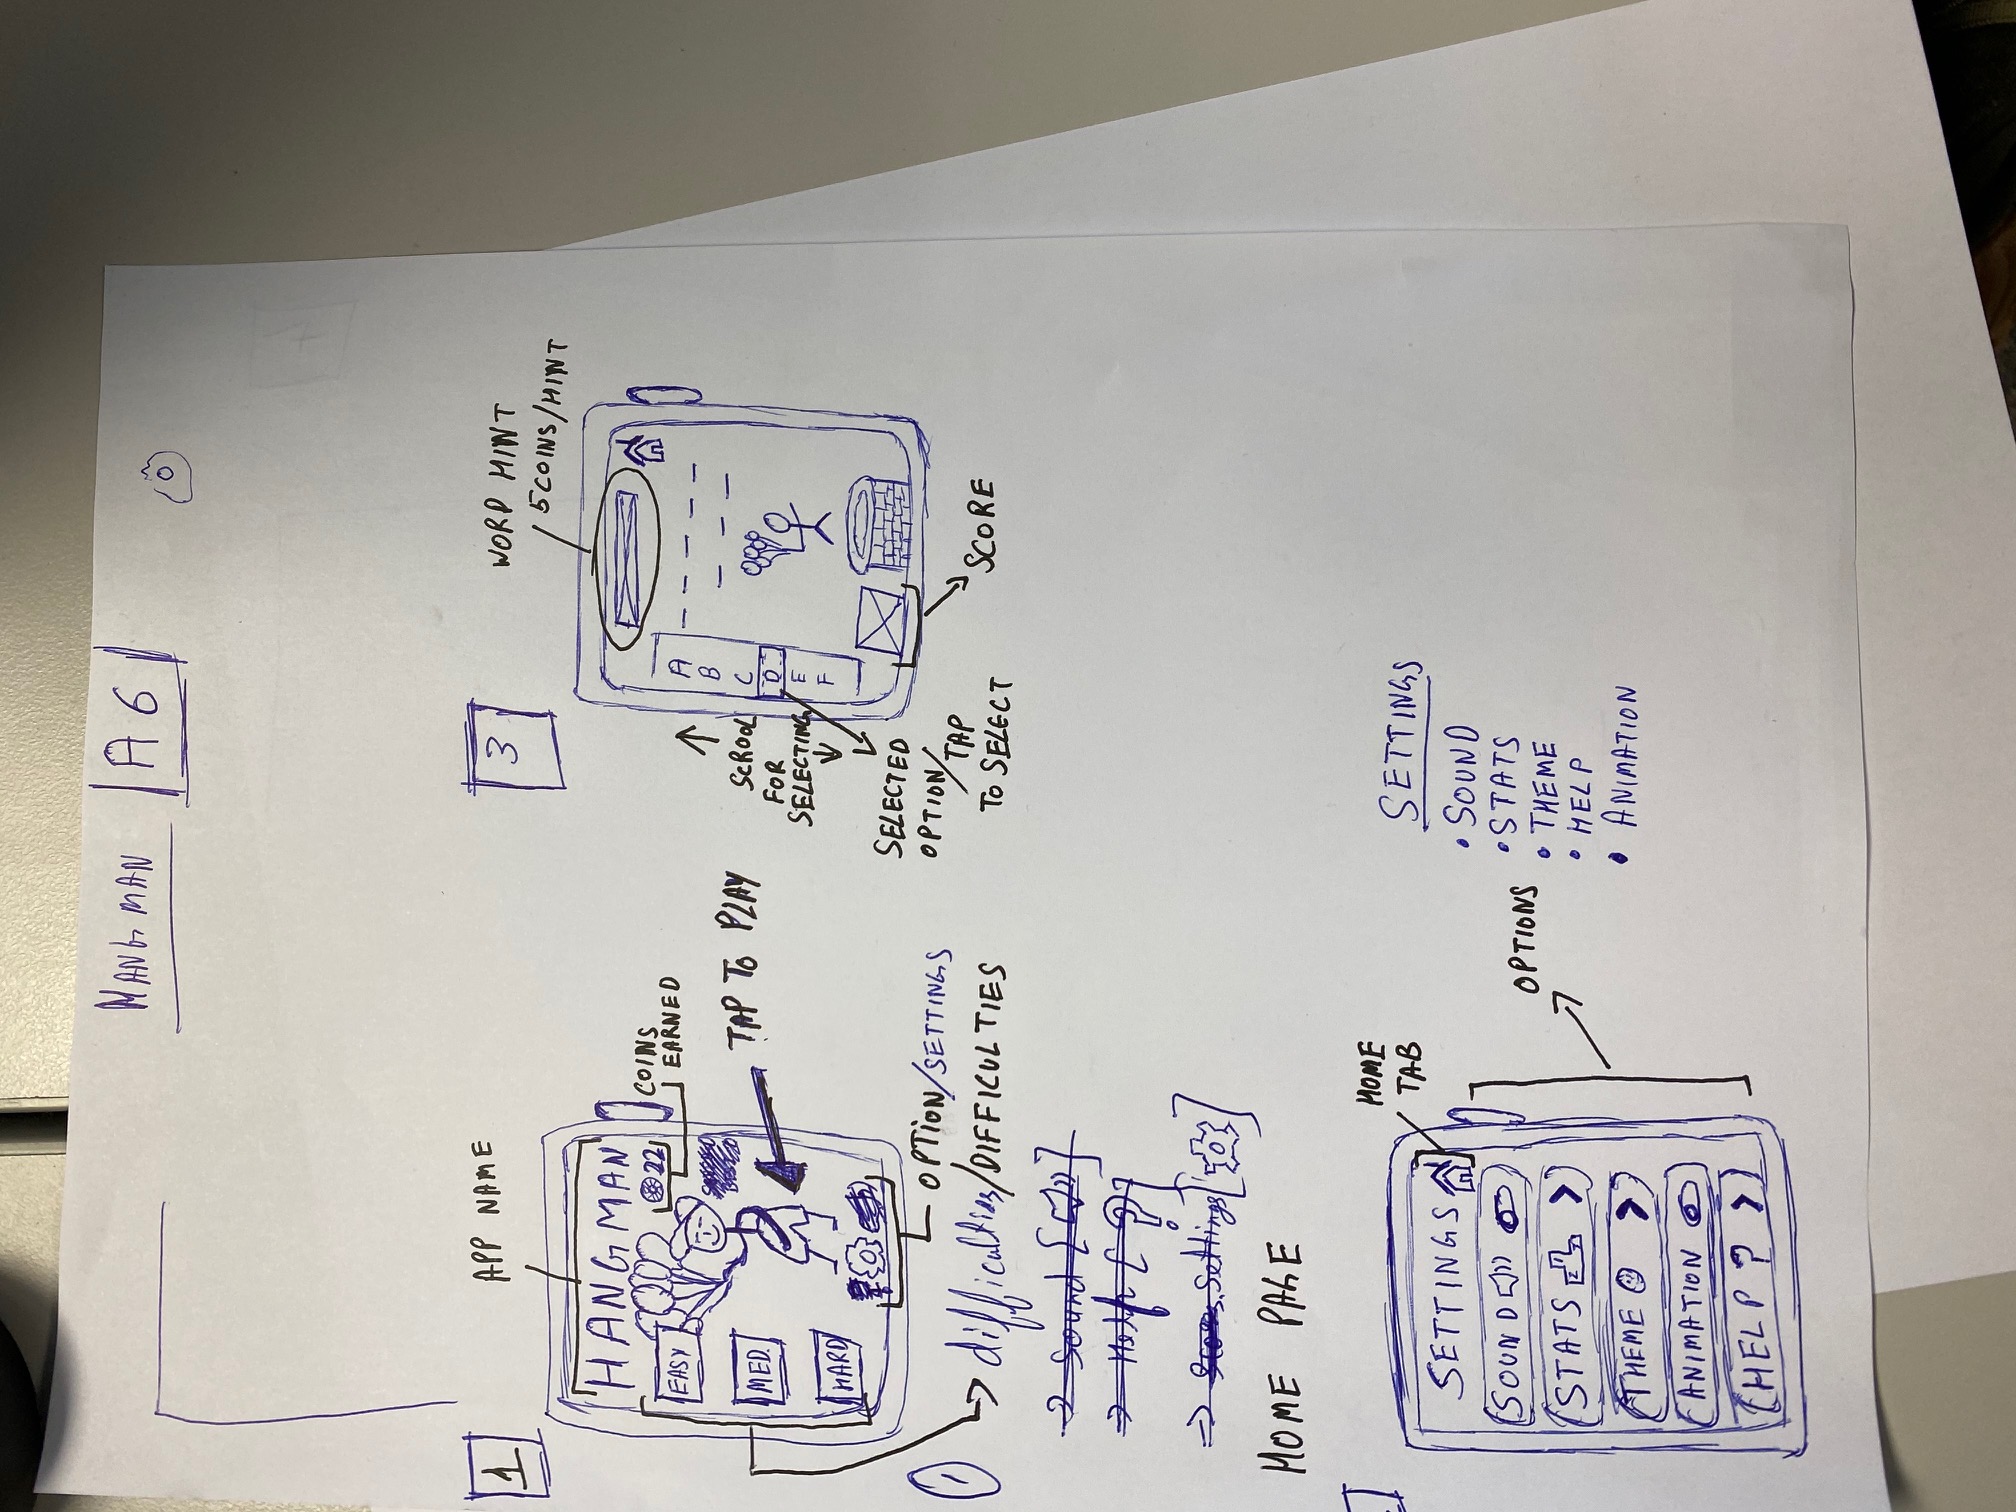 HANGMAN A6
1
APP NAME
HANGMAN
22
COINS
EARNED
EASY
MED.
HARD
TAP TO PLAY
OPTION/SETTINGS
difficulties/DIFFICULTIES
→ Sound [ ]
→ Help [ ? ]
⇒ Settings [ ]
HOME PAGE
3
WORD HINT
5COINS/HINT
A
B
C
D
E
F
SCROOL
FOR
SELECTING
SELECTED
OPTION/TAP
TO SELECT
SCORE
HOME
TAB
SETTINGS
SOUND
STATS >
THEME >
ANIMATION
HELP ? >
OPTIONS
SETTINGS
• SOUND
• STATS
• THEME
• HELP
• ANIMATION